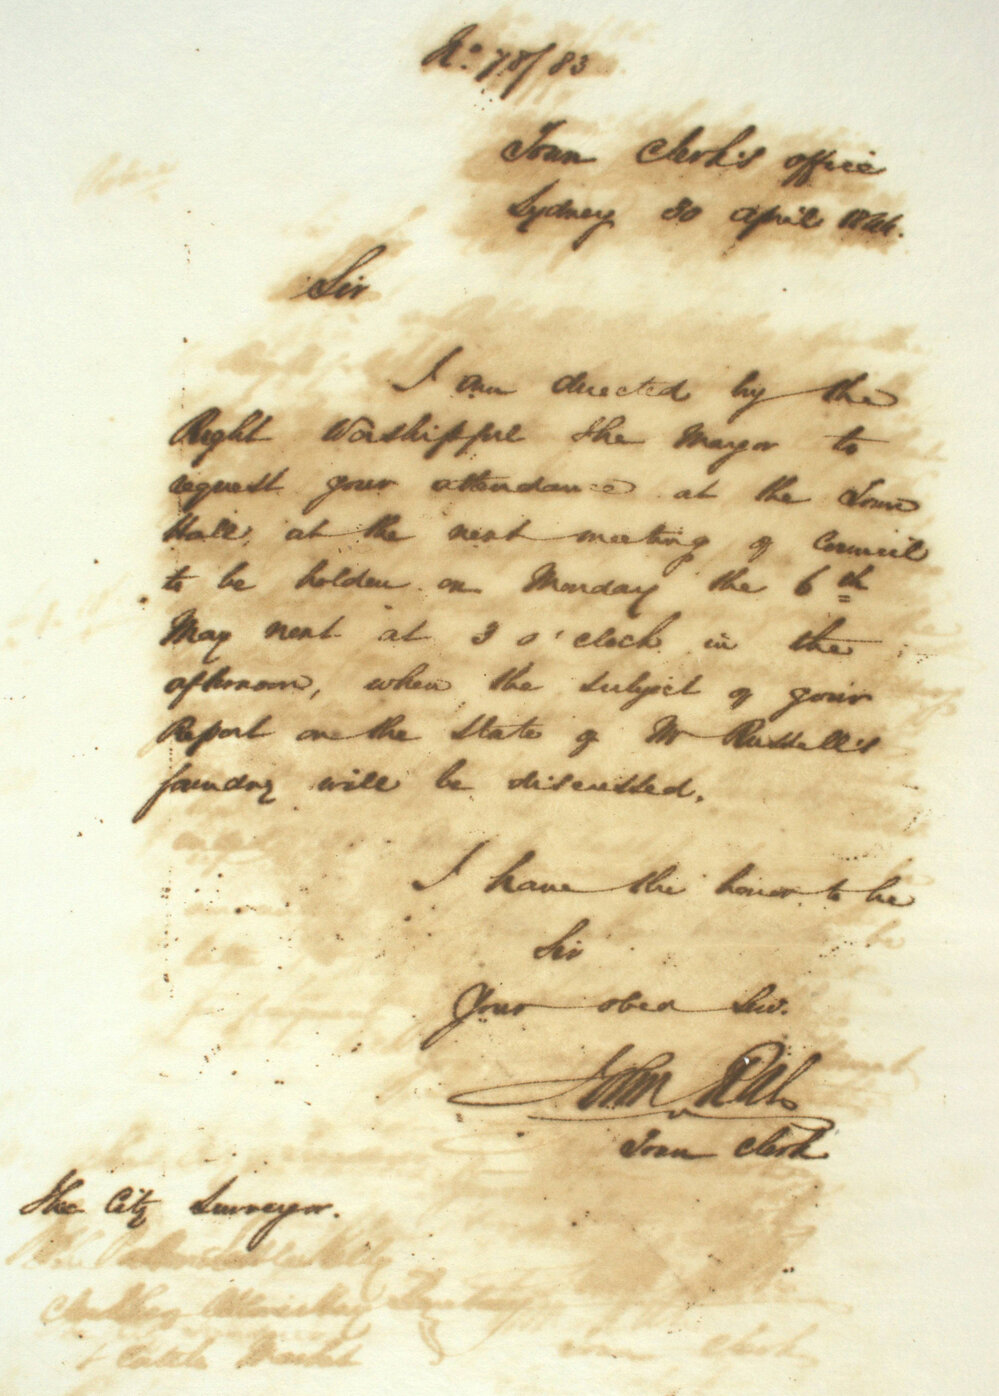 No. 78/83
Town Clerk's office
Sydney 30 April 1844.
Sir
I am directed by the
Right Worshipful the Mayor to
request your attendance at the Town
Hall, at the next meeting of Council
to be holden on Monday the 6th
May next at 3 o'clock in the
afternoon, when the subject of your
Report on the State of Mr Russell's
foundry will be discussed.
I have the honor to be
Sir
Your obed Serv.
John
Town Clerk
The City Surveyor.
& Cattle Market
Town Clerk